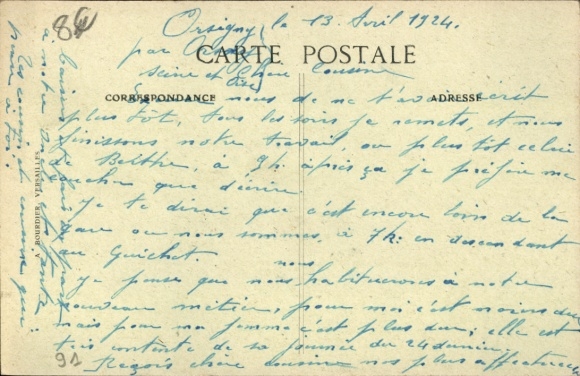 84
Orsigny, le 13 Avril 1924.
par Orsay
CARTE POSTALE
Seine et Oise
Chère Cousine
CORRESPONDANCE
ADRESSE
nous de ne t'avoir écrit
plus tôt, tous les soirs je remets, et nous
finissons notre travail, ou plus tôt celui
de Berthe, à 9h. après ça je préfère me
coucher que d'écrire.
Je te dirai que c'est encore loin de la
gare où nous sommes, à 7k: en descendant
au Guichet.
Je pense que nous nous habituerons à notre
nouveau métier, pour moi c'est moins dur
mais pour ma femme c'est plus dur; elle est
très contente de sa journée du 24 dernier.
Reçois chère cousine nos plus affectueux
baisers
à notre
Tes cousins
pour toi.
A BOURDIER, VERSAILLES
91